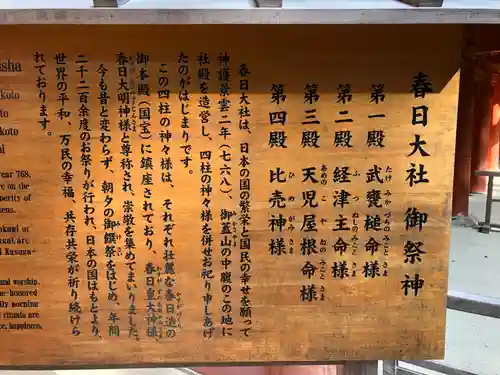 春日大社 御祭神
第一殿 武甕槌命様
たけみかづちのみことさま
第二殿 経津主命様
ふつぬしのみことさま
第三殿 天児屋根命様
あめのこやねのみことさま
第四殿 比売神様
ひめがみさま
春日大社は、日本の国の繁栄と国民の幸せを願って
神護景雲二年（七六八）、御蓋山の中腹のこの地に
社殿を造営し、四柱の神々様を併せお祀り申しあげ
たのがはじまりです。
この四柱の神々様は、それぞれ壮麗な春日造の
御本殿（国宝）に鎮座されており、春日皇大神様、
春日大明神様と尊称され、崇敬を集めてまいりました。
今も昔と変わらず、朝夕の御饌祭をはじめ、年間
二千二百余度のお祭りが行われ、日本の国はもとより、
世界の平和、万民の幸福、共存共栄が祈り続けら
れております。
sha
koto
koto
oto
al
year 768,
re on the
perity of
ens.
kuni or
ga), are
Kasuga
and worship.
e-honored
ily morning
rituals are
ce, happiness,